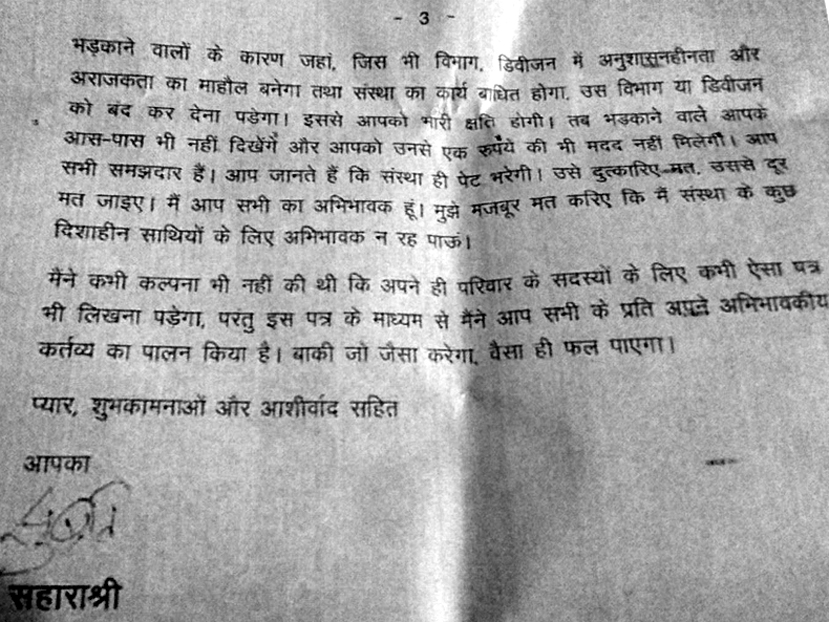 - 3 -
भड़काने वालों के कारण जहां, जिस भी विभाग, डिवीजन में अनुशासनहीनता और
अराजकता का माहौल बनेगा तथा संस्था का कार्य बाधित होगा, उस विभाग या डिवीजन
को बंद कर देना पड़ेगा। इससे आपको भारी क्षति होगी। तब भड़काने वाले आपके
आस-पास भी नहीं दिखेंगें और आपको उनसे एक रुपये की भी मदद नहीं मिलेगी। आप
सभी समझदार हैं। आप जानते हैं कि संस्था ही पेट भरेगी। उसे दुत्कारिए मत, उससे दूर
मत जाइए। मैं आप सभी का अभिभावक हूं। मुझे मजबूर मत करिए कि मैं संस्था के कुछ
दिशाहीन साथियों के लिए अभिभावक न रह पाऊं।
मैंने कभी कल्पना भी नहीं की थी कि अपने ही परिवार के सदस्यों के लिए कभी ऐसा पत्र
भी लिखना पड़ेगा, परंतु इस पत्र के माध्यम से मैंने आप सभी के प्रति अपने अभिभावकीय
कर्तव्य का पालन किया है। बाकी जो जैसा करेगा, वैसा ही फल पाएगा।
प्यार, शुभकामनाओं और आशीर्वाद सहित
आपका
सहाराश्री